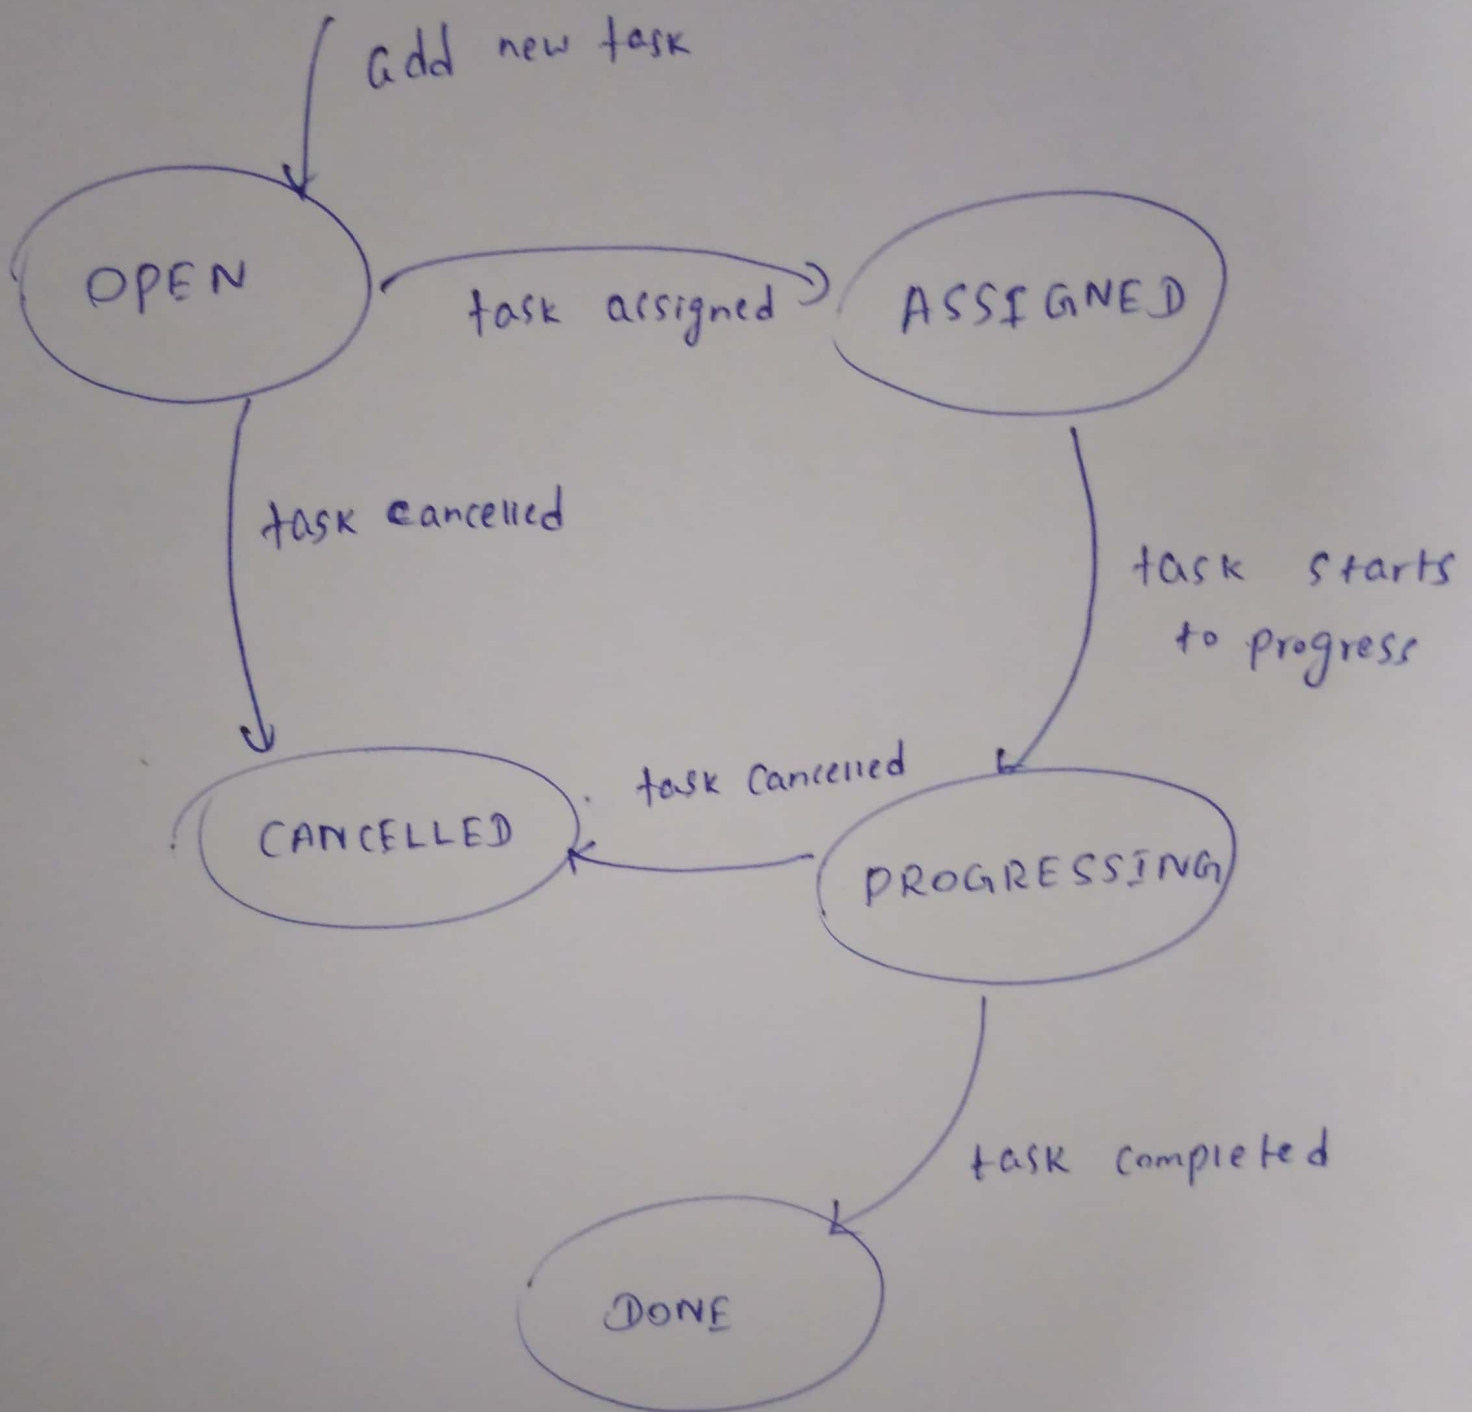 add new task
OPEN
task assigned
ASSIGNED
task cancelled
task starts
to progress
task cancelled
CANCELLED
PROGRESSING
task completed
DONE